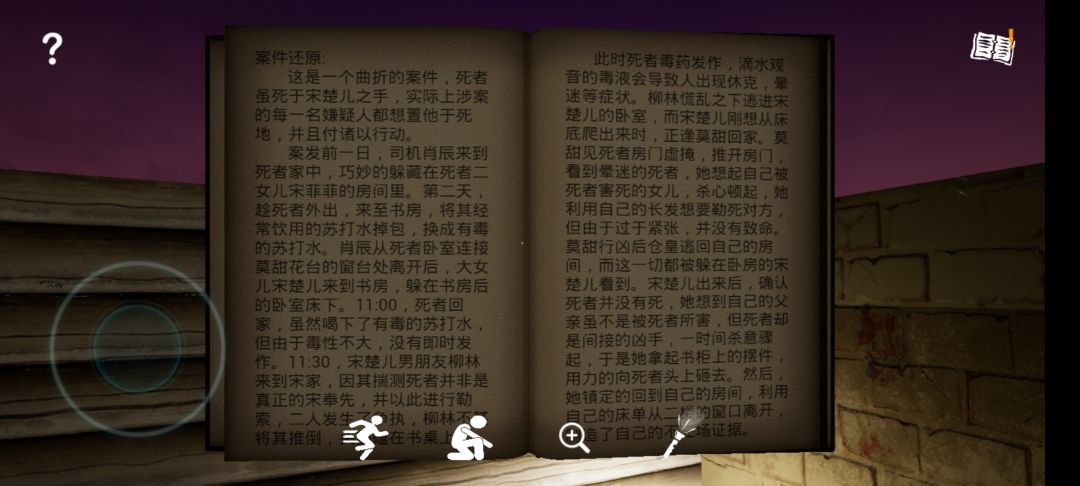 案件还原:
这是一个曲折的案件，死者
虽死于宋楚儿之手，实际上涉案
的每一名嫌疑人都想置他于死
地，并且付诸以行动。
案发前一日，司机肖辰来到
死者家中，巧妙的躲藏在死者二
女儿宋菲菲的房间里。第二天，
趁死者外出，来至书房，将其经
常饮用的苏打水掉包，换成有毒
的苏打水。肖辰从死者卧室连接
莫甜花台的窗台处离开后，大女
儿宋楚儿来到书房，躲在书房后
的卧室床下。11:00，死者回
家，虽然喝下了有毒的苏打水，
但由于毒性不大，没有即时发
作。11:30，宋楚儿男朋友柳林
来到宋家，因其揣测死者并非是
真正的宋奉先，并以此进行勒
索，二人发生了争执，柳林不
将其推倒，在书桌
此时死者毒药发作，滴水观
音的毒液会导致人出现休克，晕
迷等症状。柳林慌乱之下逃进宋
楚儿的卧室，而宋楚儿刚想从床
底爬出来时，正逢莫甜回家。莫
甜见死者房门虚掩，推开房门，
看到晕迷的死者，她想起自己被
死者害死的女儿，杀心顿起，她
利用自己的长发想要勒死对方，
但由于过于紧张，并没有致命。
莫甜行凶后仓皇逃回自己的房
间，而这一切都被躲在卧房的宋
楚儿看到。宋楚儿出来后，确认
死者并没有死，她想到自己的父
亲虽不是被死者所害，但死者却
是间接的凶手，一时间杀意骤
起，于是她拿起书柜上的摆件，
用力的向死者头上砸去。然后，
她镇定的回到自己的房间，利用
自己的床单从二楼的窗口离开，
造了自己的不在场证据。